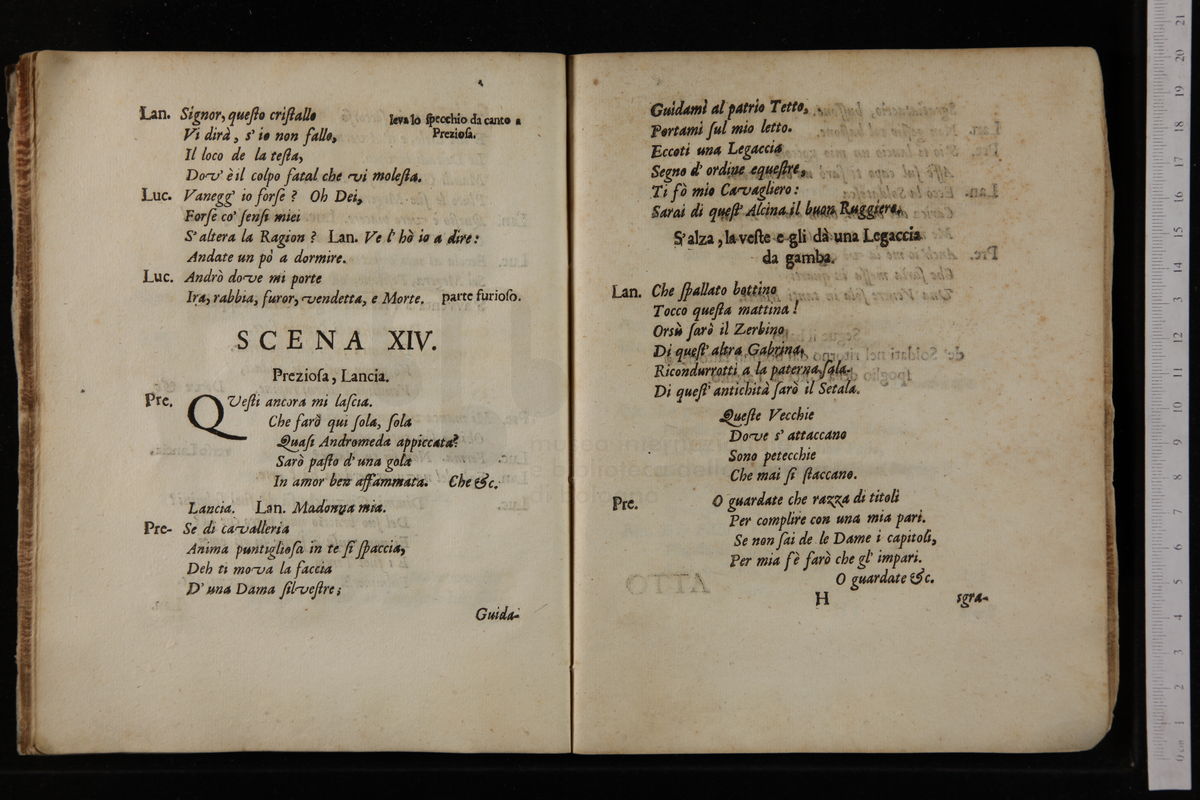 Lan. Signor, questo cristallo
leva lo specchio da canto a
Preziosa.
Vi dirà, s'io non fallo,
Il loco de la testa,
Dov' è il colpo fatal che vi molesta.
Luc. Vanegg' io forse? Oh Dei,
Forse co' sensi miei
S'altera la Ragion? Lan. Ve l' hò io a dire:
Andate un pò a dormire.
Luc. Andrò dove mi porte
Ira, rabbia, furor, vendetta, e Morte. parte furioso.
SCENA XIV.
Preziosa, Lancia.
Pre. QVesti ancora mi lascia.
Che farò qui sola, sola
Quasi Andromeda appiccata?
Sarò pasto d'una gola
In amor ben affammata. Che &c.
Lancia. Lan. Madonna mia.
Pre- Se di cavalleria
Anima puntigliosa in te si spaccia,
Deh ti mova la faccia
D'una Dama silvestre;
Guida-
Guidami al patrio Tetto,
Portami sul mio letto.
Eccoti una Legaccia
Segno d' ordine equestre,
Ti fò mio Cavagliero:
Sarai di quest' Alcina il buon Ruggiero.
S'alza, la veste e gli dà una Legaccia
da gamba.
Lan. Che spallato bottino
Tocco questa mattina!
Orsù farò il Zerbino
Di quest' altra Gabrina,
Ricondurrotti a la paterna sala.
Di quest' antichità sarò il Setala.
Queste Vecchie
Dove s' attaccano
Sono petecchie
Che mai si staccano.
Pre. O guardate che razza di titoli
Per complire con una mia pari.
Se non sai de le Dame i capitoli,
Per mia fè farò che gl' impari.
O guardate &c.
H sgra-